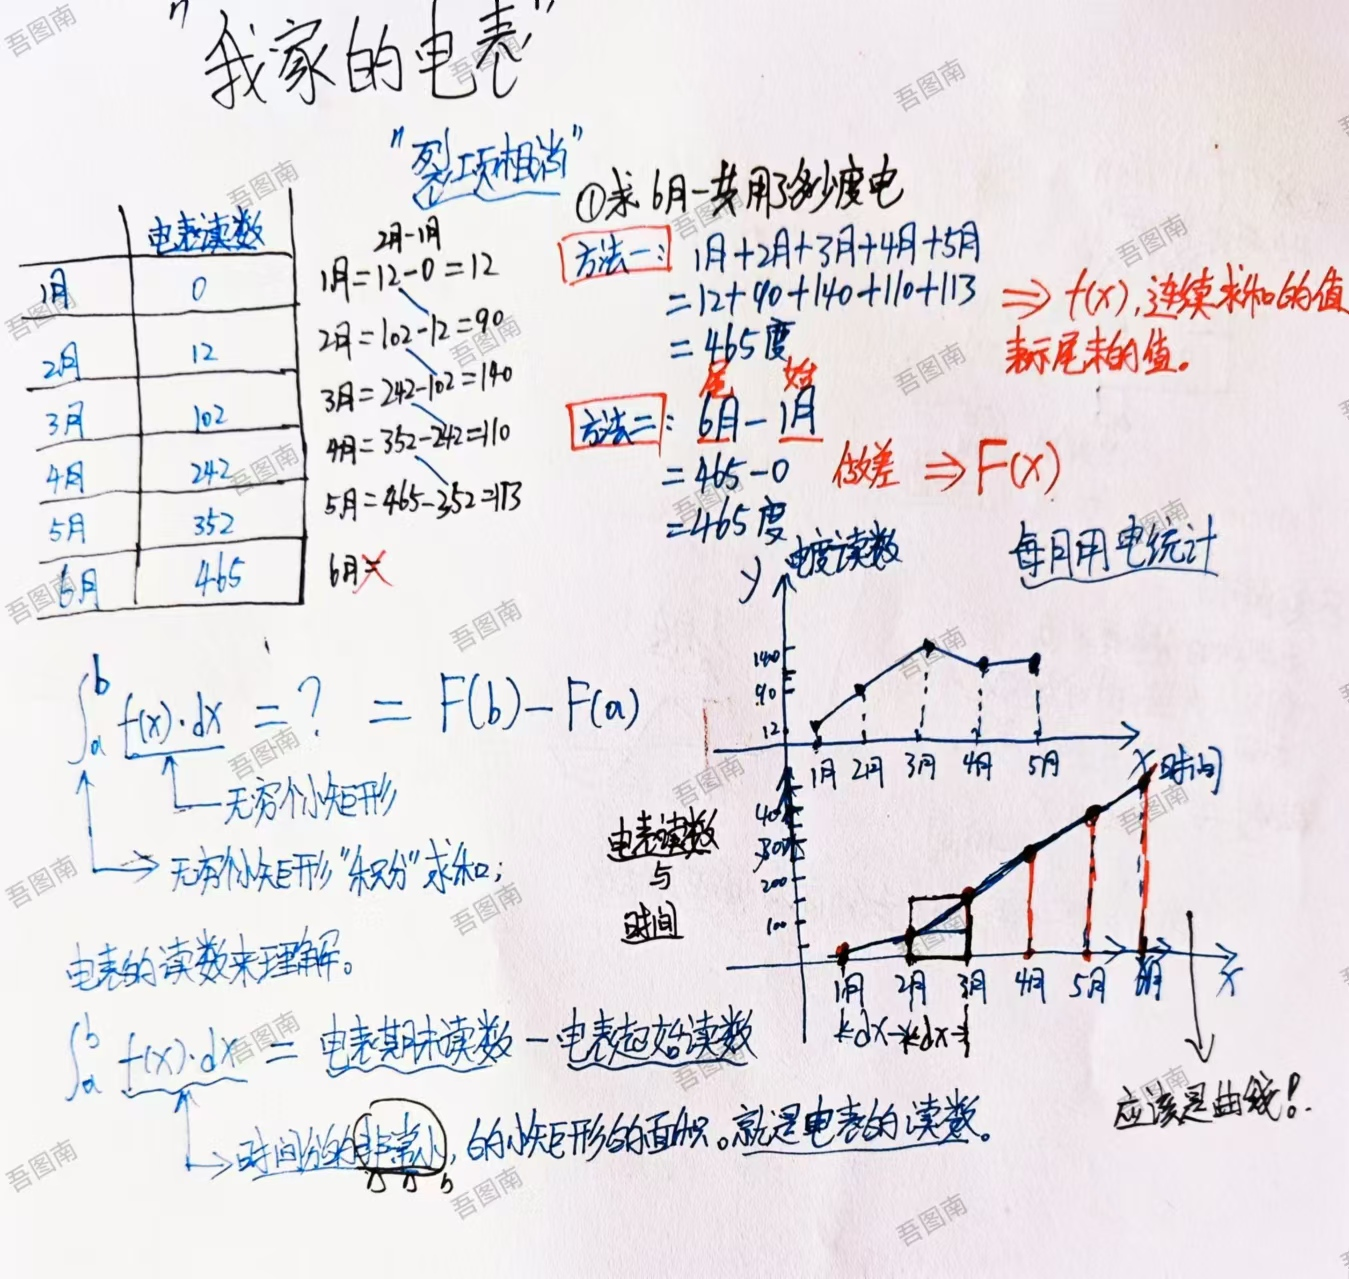 "我家的电表"
"裂项相消"
电表读数
1月 0
2月 12
3月 102
4月 242
5月 352
6月 465
2月-1月
1月=12-0=12
2月=102-12=90
3月=242-102=140
4月=352-242=110
5月=465-352=113
6月=
①求6月一共用了多少度电
方法一: 1月+2月+3月+4月+5月
=12+90+140+110+113
=465度
⇒ f(x),连续求和的值
表示尾末的值。
尾 始
方法二: 6月-1月
=465-0
=465度
做差 ⇒ F(x)
每月用电统计
y 电度读数
140
90
12
1月 2月 3月 4月 5月
X时间
∫ₐᵇ f(x)·dx =? = F(b)-F(a)
无穷个小矩形
无穷个小矩形"积分"求和;
电表读数
与
时间
y
400
300
200
100
1月 2月 3月 4月 5月 6月 X
dx dx
应该是曲线!.
电表的读数来理解。
∫ₐᵇ f(x)·dx = 电表期末读数-电表起始读数
时间分的非常小,的小矩形的面积。就是电表的读数。
吾图南